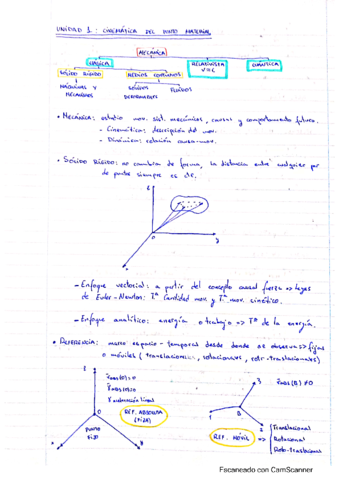 UNIDAD 1: CINEMÁTICA DEL PUNTO MATERIAL
MECÁNICA
CLÁSICA
RELATIVISTA
V≈C
CUÁNTICA
SÓLIDO RÍGIDO
MEDIOS CONTINUOS
MÁQUINAS Y
MECANISMOS
SÓLIDOS
DEFORMABLES
FLUIDOS
• MECÁNICA: estudio mov. sist. mecánicos, causas y comportamiento futuro.
- Cinemática: descripción del mov.
- Dinámica: relación causa-mov.
• SÓLIDO RÍGIDO: no cambian de forma, la distancia entre cualquier par
de puntos siempre es cte.
z
O
y
x
- Enfoque vectorial: a partir del concepto causal fuerza => Leyes
de Euler-Newton: Tª Cantidad mov. y Tª mov. cinético.
- Enfoque analítico: energía o trabajo => Tª de la energía.
• REFERENCIA: marco espacio-temporal desde donde se observa => fijas
o móviles (translacionales, rotacionales, roto-translacionales)
z
O
PUNTO
FIJO
REF. ABSOLUTA
(FIJA)
3
1
B
REF. MÓVIL
=>
Translacional
Rotacional
Roto-Translacional
Escaneado con CamScanner